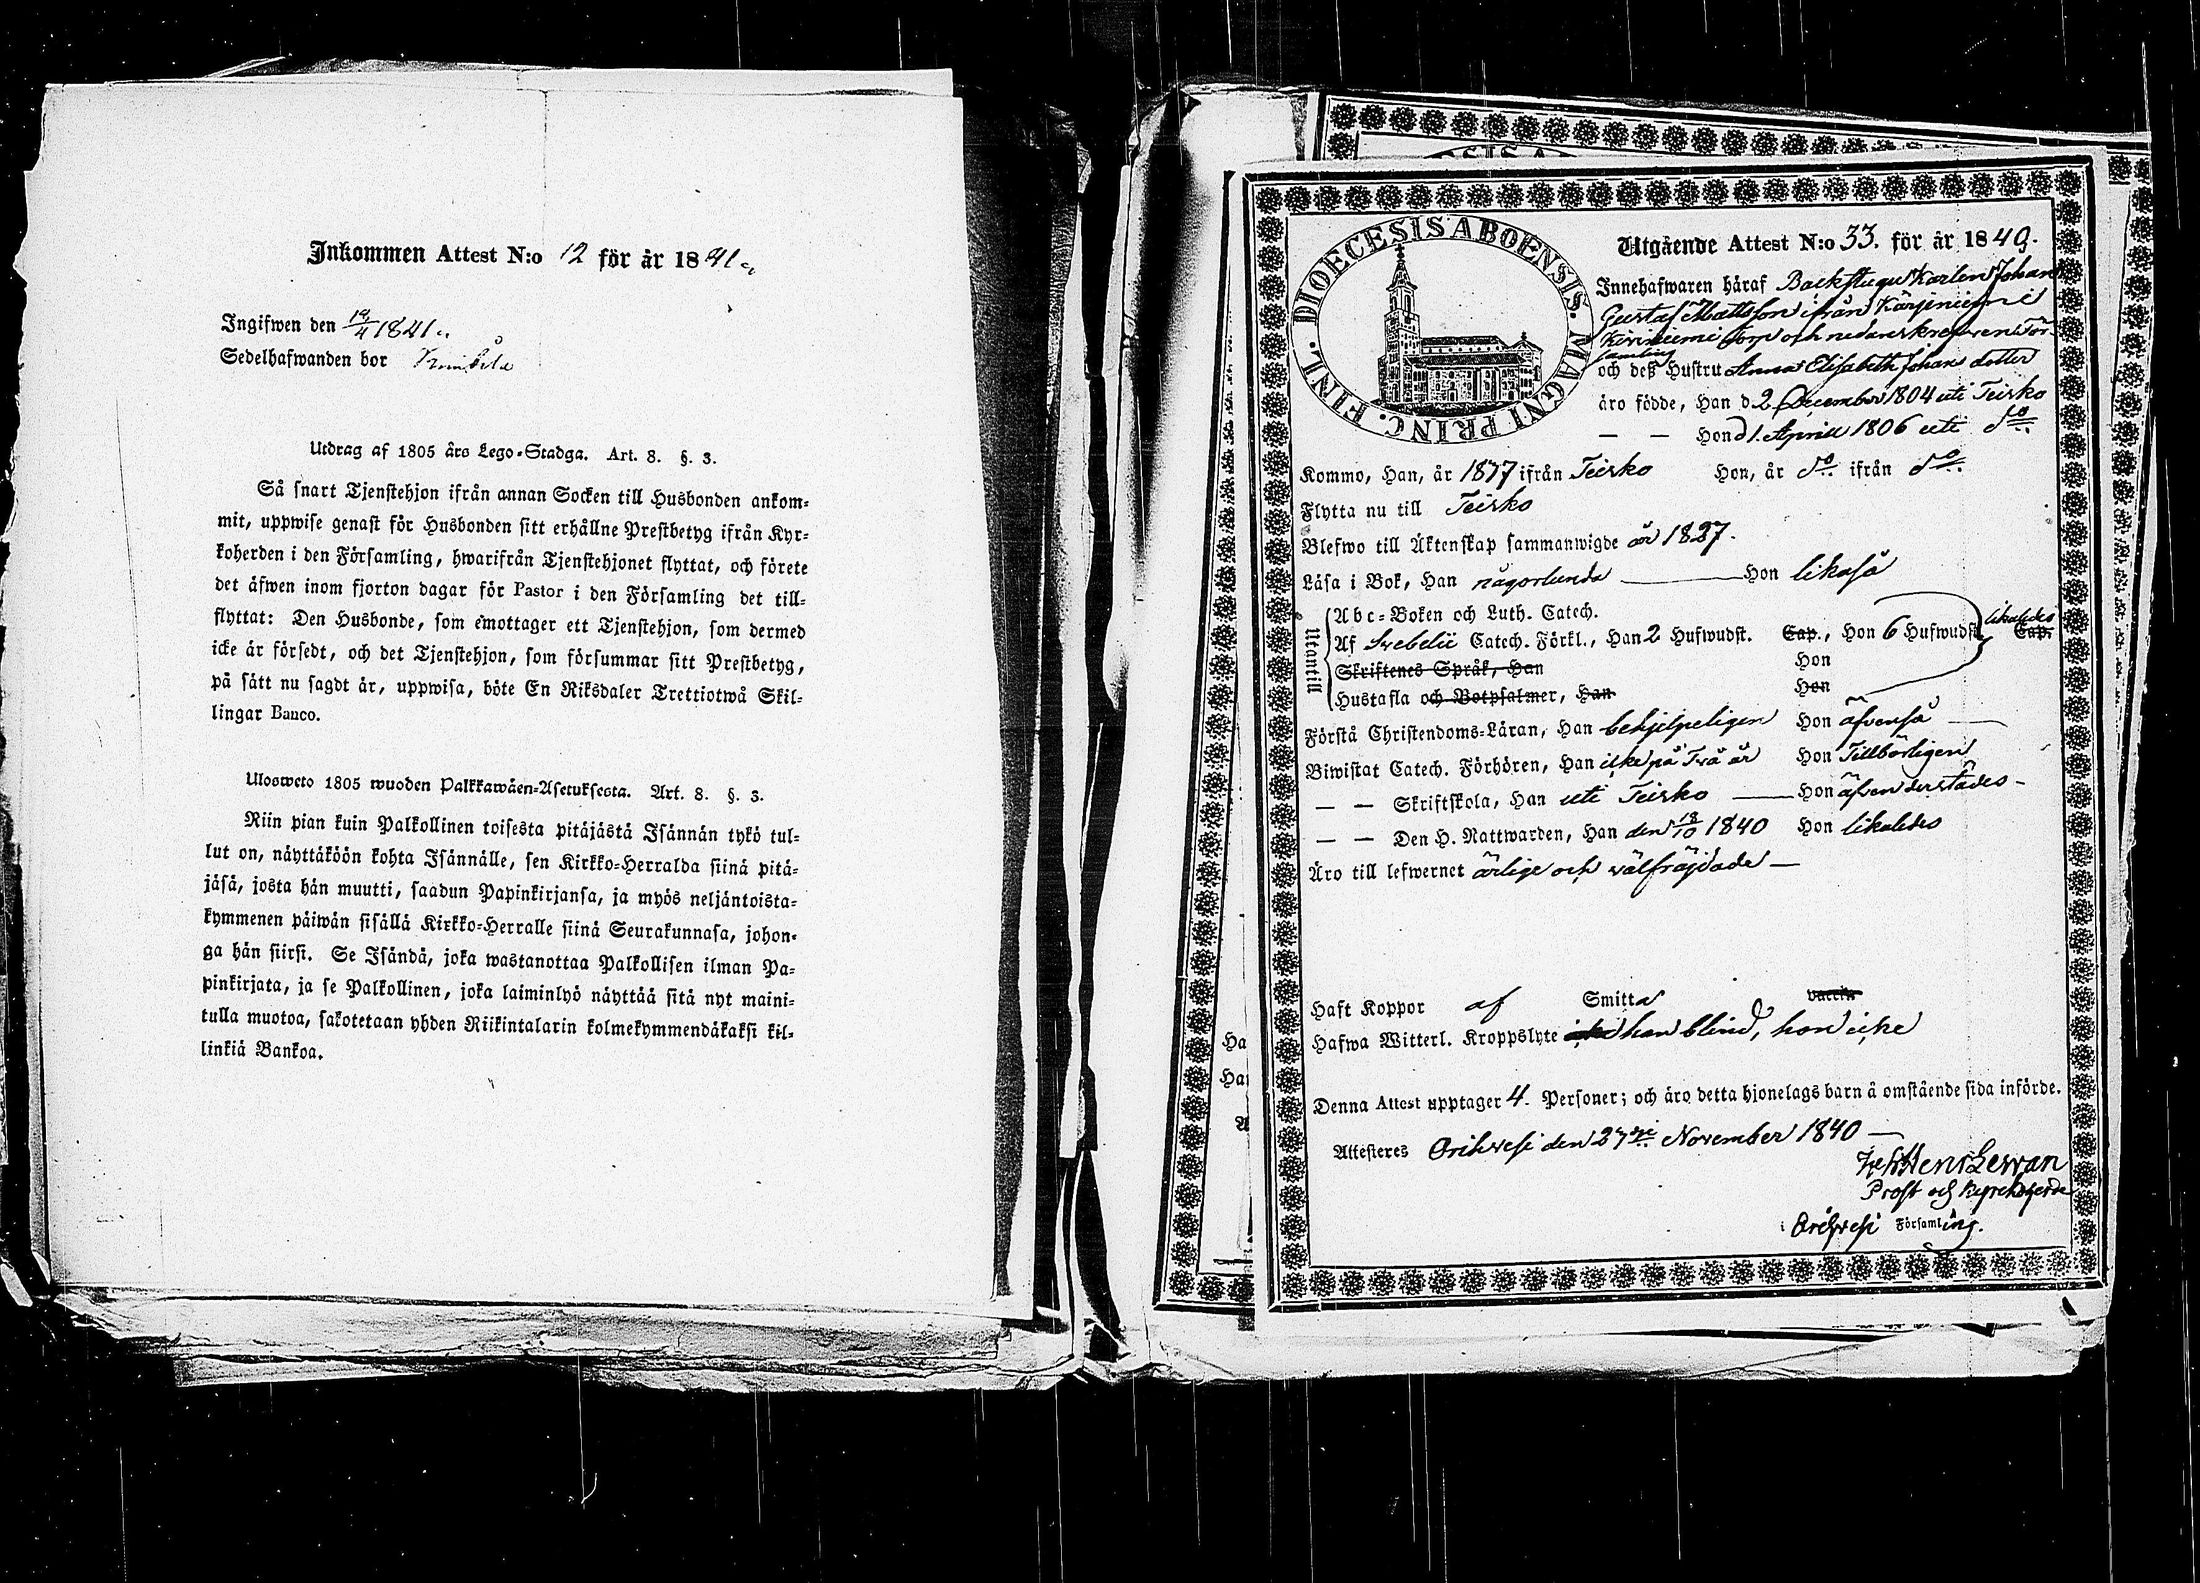 Inkommen Attest N:o 12 för år 1841
Ingifwen den 18/4 1841
Sedelhafwanden bor
Utdrag af 1805 års Lego-Stadga. Art. 8. §. 3.
Så snart Tjenstehjon ifrån annan Socken till Husbonden ankom-
mit, uppwise genast för Husbonden sitt erhållne Prestbetyg ifrån Kyr-
koherden i den Församling, hwarifrån Tjenstehjonet flyttat, och förete
det äfwen inom fjorton dagar för Pastor i den Församling det till-
flyttat: Den Husbonde, som emottager ett Tjenstehjon, som dermed
icke är försedt, och det Tjenstehjon, som försummar sitt Prestbetyg,
på sätt nu sagdt är, uppwisa, böte En Riksdaler Trettiotwå Skil-
lingar Banco.
Ulosweto 1805 wuoden Palkkawäen-Asetuksesta. Art. 8. §. 3.
Niin pian kuin Palkollinen toisesta pitäjästä Isännän tykö tul-
lut on, näyttäköön kohta Isännälle, sen Kirkko-Herralda siinä pitä-
jäsä, josta hän muutti, saadun Papinkirjansa, ja myös neljäntoista-
kymmenen päiwän sisällä Kirkko-Herralle siinä Seurakunnasa, johon-
ga hän siirsi. Se Isändä, joka wastanottaa Palkollisen ilman Pa-
pinkirjata, ja se Palkollinen, joka laiminlyö näyttää sitä nyt maini-
tulla muotoa, sakotetaan yhden Riikintalarin kolmekymmendäkaksi kil-
linkiä Bankoa.
DIOECESIS ABOENSIS. MAGNI PRINC. FINL.
Utgående Attest N:o 33. för år 1840.
Innehafwaren häraf Backstugu Karlen Johan
Gustaf Mattsson ifrån Kärjenniemi
Kiriniemi Torp och nedanskrefven För-
samling
och deß Hustru Anna Elisabeth Johans dotter
äro födde, Han d 2 December 1804 uti Teisko
— — Hon d 1. Aprill 1806 uti do
Kommo, Han, år 1877 ifrån Teisko Hon, år do ifrån do
Flytta nu till Teisko
Blefwo till Äktenskap sammanwigde år 1827.
Läsa i Bok, Han någorlunda — Hon likaså
Utantill
Abc-Boken och Luth. Catech.
Af Svebelii Catech. Förkl., Han 2 Hufwudst. Cap., Hon 6 Hufwudst. likaledes Cap.
Skriftenes Språk, Han Hon
Hustafla och Botpsalmer, Han Hon
Förstå Christendoms-Läran, Han behjelpeligen Hon äfvenså —
Biwistat Catech. Förhören, Han icke på Två år Hon Tillbörligen
— — Skriftskola, Han uti Teisko — Hon äfvenderstädes —
— — Den H. Nattwarden, Han den 18/10 1840 Hon likaledes
Äro till lefwernet ärlige och välfräjdade —
Haft Koppor af Smitta vaccin
Hafwa Witterl. Kroppslyte icke han blind, hon icke
Denna Attest upptager 4. Personer; och äro detta hjonelags barn å omstående sida införde.
Attesteres Orihvesi den 27de November 1840 —
Henr Lewan
Prost och Kyrckoherde
i Orihvesi Församling.